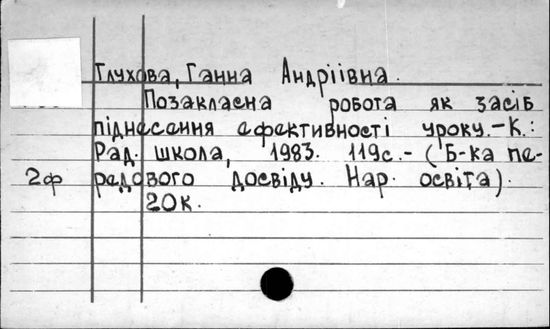 Глухова, Ганна Андріївна.
Позакласна робота як засіб
піднесення ефективності уроку.-К.:
Рад. школа, 1983. 119с.- (Б-ка пе-
2ф редового досвіду. Нар. освіта).
20к.